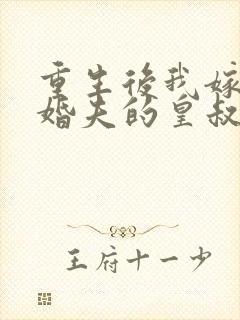 重生後我嫁
婚夫的皇叔
王府十一少